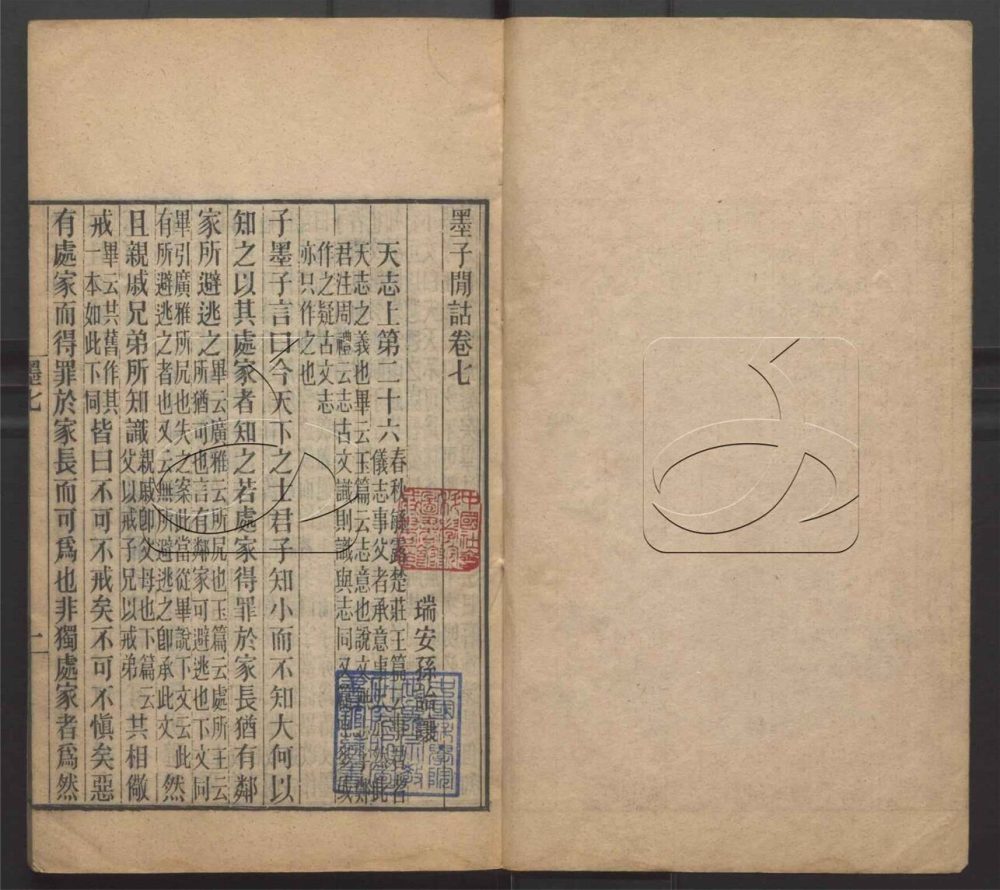 墨子閒詁卷七
瑞安孫詒讓
天志上第二十六春秋繁露楚莊王篇云事君者
儀志事父者承意事天亦然此
天志之義也畢云玉篇云志意也說文無志字鄭
君注周禮云志古文識則識與志同又篇中多或
作之疑古文志
亦只作之也
子墨子言曰今天下之士君子知小而不知大何以
知之以其處家者知之若處家得罪於家長猶有鄰
家所避逃之畢云廣雅云所凥也玉篇云處所王云
所猶可也言有鄰家可避逃也下文同
畢引廣雅所凥也失之案此當從畢說下文云此
有所避逃之者也又云無所避逃之卽承此文然
且親戚兄弟所知識親戚卽父母也下篇云
父以戒子兄以戒弟共相儆
戒畢云共舊作其
一本如此下同皆曰不可不戒矣不可不愼矣惡
有處家而得罪於家長而可爲也非獨處家者爲然
墨七
一